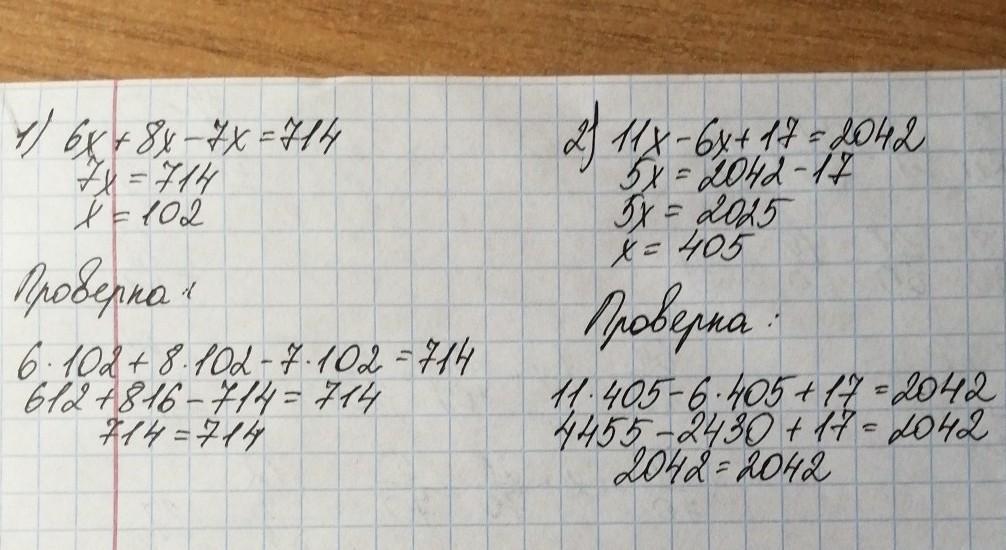 1) 6x + 8x - 7x = 714
7x = 714
x = 102
Проверка:
6·102 + 8·102 - 7·102 = 714
612 + 816 - 714 = 714
714 = 714
2) 11x - 6x + 17 = 2042
5x = 2042 - 17
5x = 2025
x = 405
Проверка:
11·405 - 6·405 + 17 = 2042
4455 - 2430 + 17 = 2042
2042 = 2042